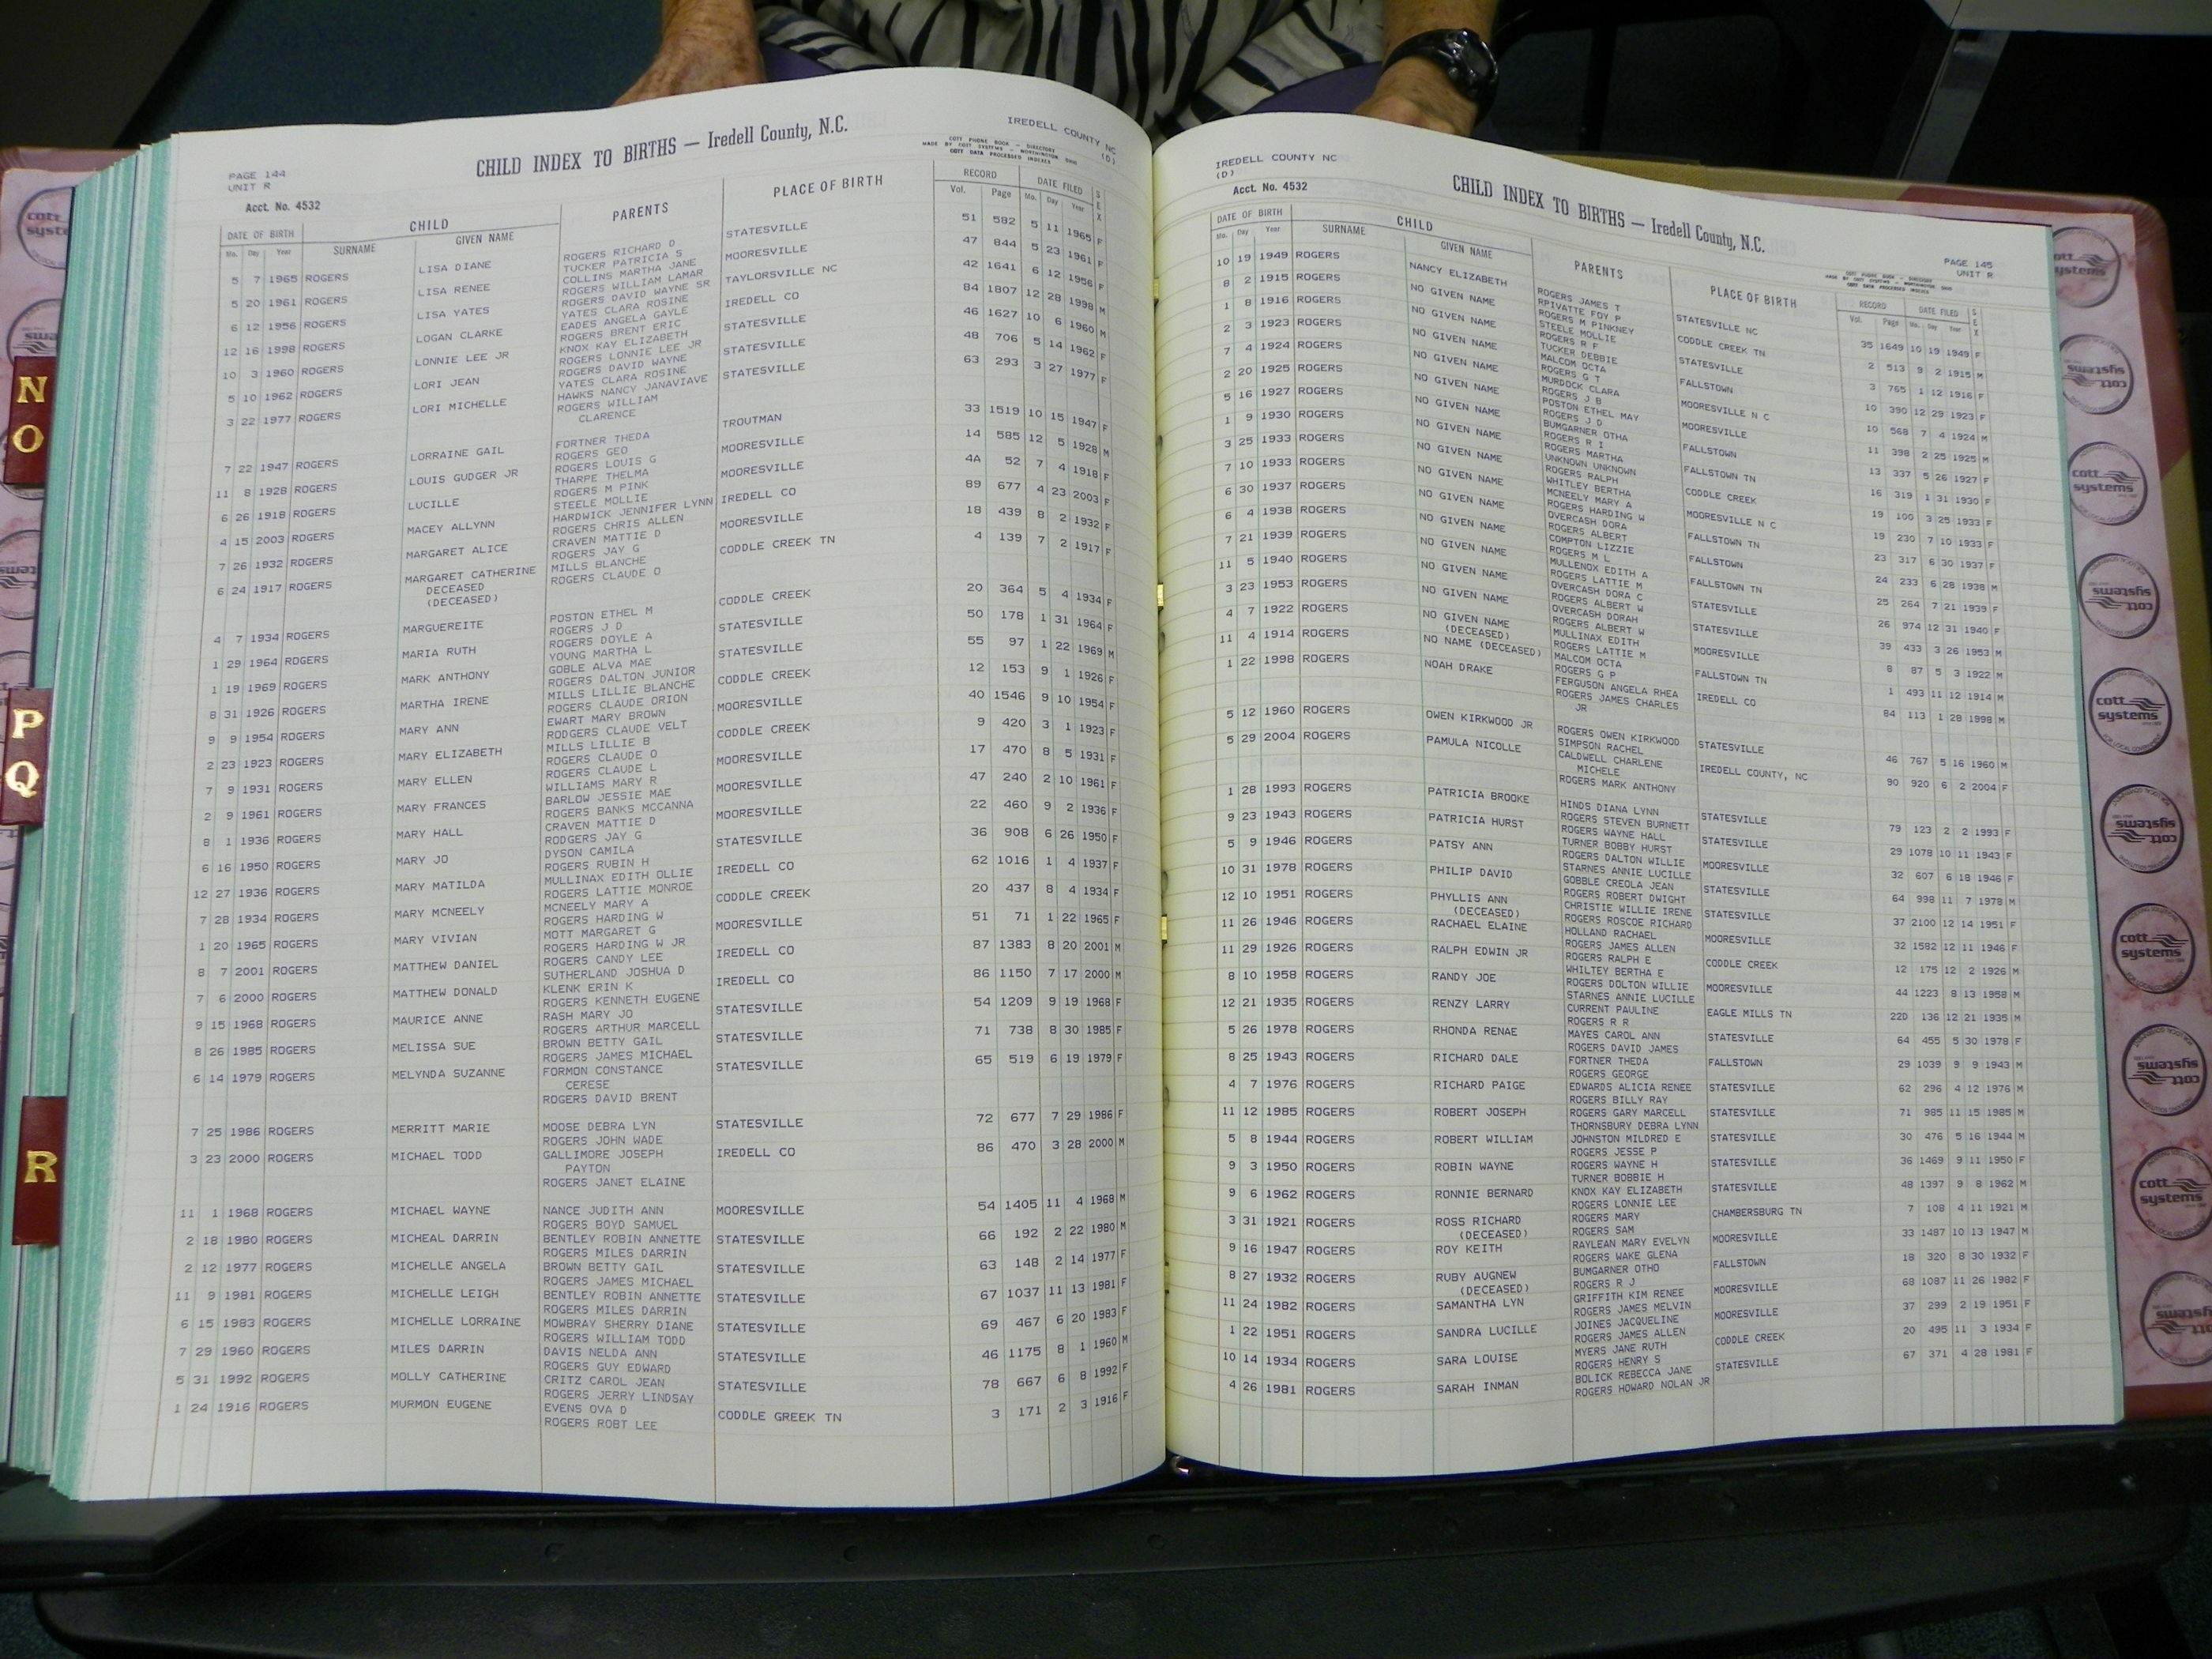 PAGE 144
UNIT R
CHILD INDEX TO BIRTHS — Iredell County, N.C.
IREDELL COUNTY NC
(D)
COTT PHONE BOOK - DIRECTORY
MADE BY COTT SYSTEMS - WORTHINGTON OHIO
COTT DATA PROCESSED INDEXES
Acct. No. 4532
DATE OF BIRTH CHILD PARENTS PLACE OF BIRTH RECORD DATE FILED SEX
Mo. Day Year SURNAME GIVEN NAME Vol. Page Mo. Day Year
5 7 1965 ROGERS LISA DIANE ROGERS RICHARD D STATESVILLE 51 582 5 11 1965 F
TUCKER PATRICIA S
5 20 1961 ROGERS LISA RENEE COLLINS MARTHA JANE MOORESVILLE 47 844 5 23 1961 F
ROGERS WILLIAM LAMAR
6 12 1956 ROGERS LISA YATES ROGERS DAVID WAYNE SR TAYLORSVILLE NC 42 1641 6 12 1956 F
YATES CLARA ROSINE
12 16 1998 ROGERS LOGAN CLARKE EADES ANGELA GAYLE IREDELL CO 84 1807 12 28 1998 M
ROGERS BRENT ERIC
10 3 1960 ROGERS LONNIE LEE JR KNOX KAY ELIZABETH STATESVILLE 46 1627 10 6 1960 M
ROGERS LONNIE LEE JR
5 10 1962 ROGERS LORI JEAN ROGERS DAVID WAYNE STATESVILLE 48 706 5 14 1962 F
YATES CLARA ROSINE
3 22 1977 ROGERS LORI MICHELLE HAWKS NANCY JANAVIAVE STATESVILLE 63 293 3 27 1977 F
ROGERS WILLIAM
CLARENCE
7 22 1947 ROGERS LORRAINE GAIL FORTNER THEDA TROUTMAN 33 1519 10 15 1947 F
ROGERS GEO
11 8 1928 ROGERS LOUIS GUDGER JR ROGERS LOUIS G MOORESVILLE 14 585 12 5 1928 M
THARPE THELMA
6 26 1918 ROGERS LUCILLE ROGERS M PINK MOORESVILLE 4A 52 7 4 1918 F
STEELE MOLLIE
4 15 2003 ROGERS MACEY ALLYNN HARDWICK JENNIFER LYNN IREDELL CO 89 677 4 23 2003 F
ROGERS CHRIS ALLEN
7 26 1932 ROGERS MARGARET ALICE CRAVEN MATTIE D MOORESVILLE 18 439 8 2 1932 F
ROGERS JAY G
6 24 1917 ROGERS MARGARET CATHERINE MILLS BLANCHE CODDLE CREEK TN 4 139 7 2 1917 F
DECEASED ROGERS CLAUDE O
(DECEASED)
4 7 1934 ROGERS MARGUEREITE POSTON ETHEL M CODDLE CREEK 20 364 5 4 1934 F
ROGERS J D
1 29 1964 ROGERS MARIA RUTH ROGERS DOYLE A STATESVILLE 50 178 1 31 1964 F
YOUNG MARTHA L
1 19 1969 ROGERS MARK ANTHONY GOBLE ALVA MAE STATESVILLE 55 97 1 22 1969 M
ROGERS DALTON JUNIOR
8 31 1926 ROGERS MARTHA IRENE MILLS LILLIE BLANCHE CODDLE CREEK 12 153 9 1 1926 F
ROGERS CLAUDE ORION
9 9 1954 ROGERS MARY ANN EWART MARY BROWN MOORESVILLE 40 1546 9 10 1954 F
RODGERS CLAUDE VELT
2 23 1923 ROGERS MARY ELIZABETH MILLS LILLIE B CODDLE CREEK 9 420 3 1 1923 F
ROGERS CLAUDE O
7 9 1931 ROGERS MARY ELLEN ROGERS CLAUDE L MOORESVILLE 17 470 8 5 1931 F
WILLIAMS MARY R
2 9 1961 ROGERS MARY FRANCES BARLOW JESSIE MAE MOORESVILLE 47 240 2 10 1961 F
ROGERS BANKS MCCANNA
8 1 1936 ROGERS MARY HALL CRAVEN MATTIE D MOORESVILLE 22 460 9 2 1936 F
RODGERS JAY G
6 16 1950 ROGERS MARY JO DYSON CAMILA STATESVILLE 36 908 6 26 1950 F
ROGERS RUBIN H
12 27 1936 ROGERS MARY MATILDA MULLINAX EDITH OLLIE IREDELL CO 62 1016 1 4 1937 F
ROGERS LATTIE MONROE
7 28 1934 ROGERS MARY MCNEELY MCNEELY MARY A CODDLE CREEK 20 437 8 4 1934 F
ROGERS HARDING W
1 20 1965 ROGERS MARY VIVIAN MOTT MARGARET G MOORESVILLE 51 71 1 22 1965 F
ROGERS HARDING W JR
8 7 2001 ROGERS MATTHEW DANIEL ROGERS CANDY LEE IREDELL CO 87 1383 8 20 2001 M
SUTHERLAND JOSHUA D
7 6 2000 ROGERS MATTHEW DONALD KLENK ERIN K IREDELL CO 86 1150 7 17 2000 M
ROGERS KENNETH EUGENE
9 15 1968 ROGERS MAURICE ANNE RASH MARY JO STATESVILLE 54 1209 9 19 1968 F
ROGERS ARTHUR MARCELL
8 26 1985 ROGERS MELISSA SUE BROWN BETTY GAIL STATESVILLE 71 738 8 30 1985 F
ROGERS JAMES MICHAEL
6 14 1979 ROGERS MELYNDA SUZANNE FORMON CONSTANCE STATESVILLE 65 519 6 19 1979 F
CERESE
ROGERS DAVID BRENT
7 25 1986 ROGERS MERRITT MARIE MOOSE DEBRA LYN STATESVILLE 72 677 7 29 1986 F
ROGERS JOHN WADE
3 23 2000 ROGERS MICHAEL TODD GALLIMORE JOSEPH IREDELL CO 86 470 3 28 2000 M
PAYTON
ROGERS JANET ELAINE
11 1 1968 ROGERS MICHAEL WAYNE NANCE JUDITH ANN MOORESVILLE 54 1405 11 4 1968 M
ROGERS BOYD SAMUEL
2 18 1980 ROGERS MICHEAL DARRIN BENTLEY ROBIN ANNETTE STATESVILLE 66 192 2 22 1980 M
ROGERS MILES DARRIN
2 12 1977 ROGERS MICHELLE ANGELA BROWN BETTY GAIL STATESVILLE 63 148 2 14 1977 F
ROGERS JAMES MICHAEL
11 9 1981 ROGERS MICHELLE LEIGH BENTLEY ROBIN ANNETTE STATESVILLE 67 1037 11 13 1981 F
ROGERS MILES DARRIN
6 15 1983 ROGERS MICHELLE LORRAINE MOWBRAY SHERRY DIANE STATESVILLE 69 467 6 20 1983 F
ROGERS WILLIAM TODD
7 29 1960 ROGERS MILES DARRIN DAVIS NELDA ANN STATESVILLE 46 1175 8 1 1960 M
ROGERS GUY EDWARD
5 31 1992 ROGERS MOLLY CATHERINE CRITZ CAROL JEAN STATESVILLE 78 667 6 8 1992 F
ROGERS JERRY LINDSAY
1 24 1916 ROGERS MURMON EUGENE EVENS OVA D CODDLE GREEK TN 3 171 2 3 1916 F
ROGERS ROBT LEE
IREDELL COUNTY NC
(D)
CHILD INDEX TO BIRTHS — Iredell County, N.C.
PAGE 145
UNIT R
Acct. No. 4532
DATE OF BIRTH CHILD PARENTS PLACE OF BIRTH RECORD DATE FILED SEX
Mo. Day Year SURNAME GIVEN NAME Vol. Page Mo. Day Year
10 19 1949 ROGERS NANCY ELIZABETH ROGERS JAMES T STATESVILLE NC 35 1649 10 19 1949 F
RPIVATTE FOY P
8 2 1915 ROGERS NO GIVEN NAME ROGERS M PINKNEY CODDLE CREEK TN 2 513 9 2 1915 M
STEELE MOLLIE
1 8 1916 ROGERS NO GIVEN NAME ROGERS R F STATESVILLE 3 765 1 12 1916 F
TUCKER DEBBIE
2 3 1923 ROGERS NO GIVEN NAME MALCOM OCTA FALLSTOWN 10 390 12 29 1923 F
ROGERS G T
7 4 1924 ROGERS NO GIVEN NAME MURDOCK CLARA MOORESVILLE N C 10 568 7 4 1924 M
ROGERS J B
2 20 1925 ROGERS NO GIVEN NAME POSTON ETHEL MAY MOORESVILLE 11 398 2 25 1925 M
ROGERS J D
5 16 1927 ROGERS NO GIVEN NAME BUMGARNER OTHA FALLSTOWN 13 337 5 26 1927 F
ROGERS R I
1 9 1930 ROGERS NO GIVEN NAME ROGERS MARTHA FALLSTOWN TN 16 319 1 31 1930 F
UNKNOWN UNKNOWN
3 25 1933 ROGERS NO GIVEN NAME ROGERS RALPH CODDLE CREEK 19 100 3 25 1933 F
WHITLEY BERTHA
7 10 1933 ROGERS NO GIVEN NAME MCNEELY MARY A MOORESVILLE N C 19 230 7 10 1933 F
ROGERS HARDING W
6 30 1937 ROGERS NO GIVEN NAME OVERCASH DORA FALLSTOWN TN 23 317 6 30 1937 F
ROGERS ALBERT
6 4 1938 ROGERS NO GIVEN NAME COMPTON LIZZIE FALLSTOWN 24 233 6 28 1938 M
ROGERS M L
7 21 1939 ROGERS NO GIVEN NAME MULLENOX EDITH A FALLSTOWN TN 25 264 7 21 1939 F
ROGERS LATTIE M
11 5 1940 ROGERS NO GIVEN NAME OVERCASH DORA C STATESVILLE 26 974 12 31 1940 F
ROGERS ALBERT W
3 23 1953 ROGERS NO GIVEN NAME OVERCASH DORAH STATESVILLE 39 433 3 26 1953 M
ROGERS ALBERT W
4 7 1922 ROGERS NO GIVEN NAME MULLINAX EDITH MOORESVILLE 8 87 5 3 1922 M
(DECEASED) ROGERS LATTIE M
11 4 1914 ROGERS NO NAME (DECEASED) MALCOM OCTA FALLSTOWN TN 1 493 11 12 1914 M
ROGERS G P
1 22 1998 ROGERS NOAH DRAKE FERGUSON ANGELA RHEA IREDELL CO 84 113 1 28 1998 M
ROGERS JAMES CHARLES
JR
5 12 1960 ROGERS OWEN KIRKWOOD JR ROGERS OWEN KIRKWOOD STATESVILLE 46 767 5 16 1960 M
SIMPSON RACHEL
5 29 2004 ROGERS PAMULA NICOLLE CALDWELL CHARLENE IREDELL COUNTY, NC 90 920 6 2 2004 F
MICHELE
ROGERS MARK ANTHONY
1 28 1993 ROGERS PATRICIA BROOKE HINDS DIANA LYNN STATESVILLE 79 123 2 2 1993 F
ROGERS STEVEN BURNETT
9 23 1943 ROGERS PATRICIA HURST ROGERS WAYNE HALL STATESVILLE 29 1078 10 11 1943 F
TURNER BOBBY HURST
5 9 1946 ROGERS PATSY ANN ROGERS DALTON WILLIE MOORESVILLE 32 607 6 18 1946 F
STARNES ANNIE LUCILLE
10 31 1978 ROGERS PHILIP DAVID GOBBLE CREOLA JEAN STATESVILLE 64 998 11 7 1978 M
ROGERS ROBERT DWIGHT
12 10 1951 ROGERS PHYLLIS ANN CHRISTIE WILLIE IRENE STATESVILLE 37 2100 12 14 1951 F
(DECEASED) ROGERS ROSCOE RICHARD
11 26 1946 ROGERS RACHAEL ELAINE HOLLAND RACHAEL MOORESVILLE 32 1582 12 11 1946 F
ROGERS JAMES ALLEN
11 29 1926 ROGERS RALPH EDWIN JR ROGERS RALPH E CODDLE CREEK 12 175 12 2 1926 M
WHILTEY BERTHA E
8 10 1958 ROGERS RANDY JOE ROGERS DOLTON WILLIE MOORESVILLE 44 1223 8 13 1958 M
STARNES ANNIE LUCILLE
12 21 1935 ROGERS RENZY LARRY CURRENT PAULINE EAGLE MILLS TN 22D 136 12 21 1935 M
ROGERS R R
5 26 1978 ROGERS RHONDA RENAE MAYES CAROL ANN STATESVILLE 64 455 5 30 1978 F
ROGERS DAVID JAMES
8 25 1943 ROGERS RICHARD DALE FORTNER THEDA FALLSTOWN 29 1039 9 9 1943 M
ROGERS GEORGE
4 7 1976 ROGERS RICHARD PAIGE EDWARDS ALICIA RENEE STATESVILLE 62 296 4 12 1976 M
ROGERS BILLY RAY
11 12 1985 ROGERS ROBERT JOSEPH ROGERS GARY MARCELL STATESVILLE 71 985 11 15 1985 M
THORNSBURY DEBRA LYNN
5 8 1944 ROGERS ROBERT WILLIAM JOHNSTON MILDRED E STATESVILLE 30 476 5 16 1944 M
ROGERS JESSE P
9 3 1950 ROGERS ROBIN WAYNE ROGERS WAYNE H STATESVILLE 36 1469 9 11 1950 F
TURNER BOBBIE H
9 6 1962 ROGERS RONNIE BERNARD KNOX KAY ELIZABETH STATESVILLE 48 1397 9 8 1962 M
ROGERS LONNIE LEE
3 31 1921 ROGERS ROSS RICHARD ROGERS MARY CHAMBERSBURG TN 7 108 4 11 1921 M
(DECEASED) ROGERS SAM
9 16 1947 ROGERS ROY KEITH RAYLEAN MARY EVELYN MOORESVILLE 33 1487 10 13 1947 M
ROGERS WAKE GLENA
8 27 1932 ROGERS RUBY AUGNEW BUMGARNER OTHO FALLSTOWN 18 320 8 30 1932 F
(DECEASED) ROGERS R J
11 24 1982 ROGERS SAMANTHA LYN GRIFFITH KIM RENEE MOORESVILLE 68 1087 11 26 1982 F
ROGERS JAMES MELVIN
1 22 1951 ROGERS SANDRA LUCILLE JOINES JACQUELINE MOORESVILLE 37 299 2 19 1951 F
ROGERS JAMES ALLEN
10 14 1934 ROGERS SARA LOUISE MYERS JANE RUTH CODDLE CREEK 20 495 11 3 1934 F
ROGERS HENRY S
4 26 1981 ROGERS SARAH INMAN BOLICK REBECCA JANE STATESVILLE 67 371 4 28 1981 F
ROGERS HOWARD NOLAN JR
N
O
P
Q
R
cott
systems